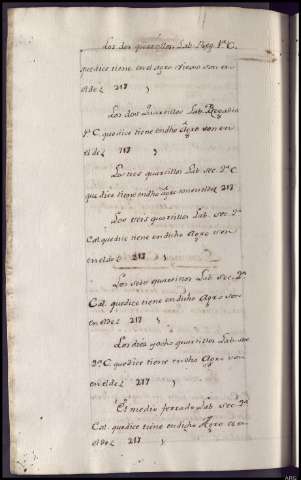 Los dos quartillos Lab. Reg. 1ª C.
que dice tiene en el Agro son en
el de ( 217 )
Los dos Quartillos Lab. Regadia
1ª C. que dice tiene en dho Agro son en
el de ( 217 )
La tres quartillos Lab. sec. 2ª C
que dice tiene en dho Agro son en el de ( 217
Los treis quartillos Lab. sec. 2ª
Cal. que dice tiene en dicho Agro son
en el de ( 217 )
Los seis quartillos Lab. sec. 2ª
Cal. que dice tiene en dicho Agro son
en el de ( 217 )
Los diez y ocho quartillos Lab. sec
2ª C. que dice tiene en dho Agro son
en el de ( 217 )
El medio ferrado Lab. sec. 2ª
Cal. que dice tiene en dicho Agro es en
el de ( 217 )